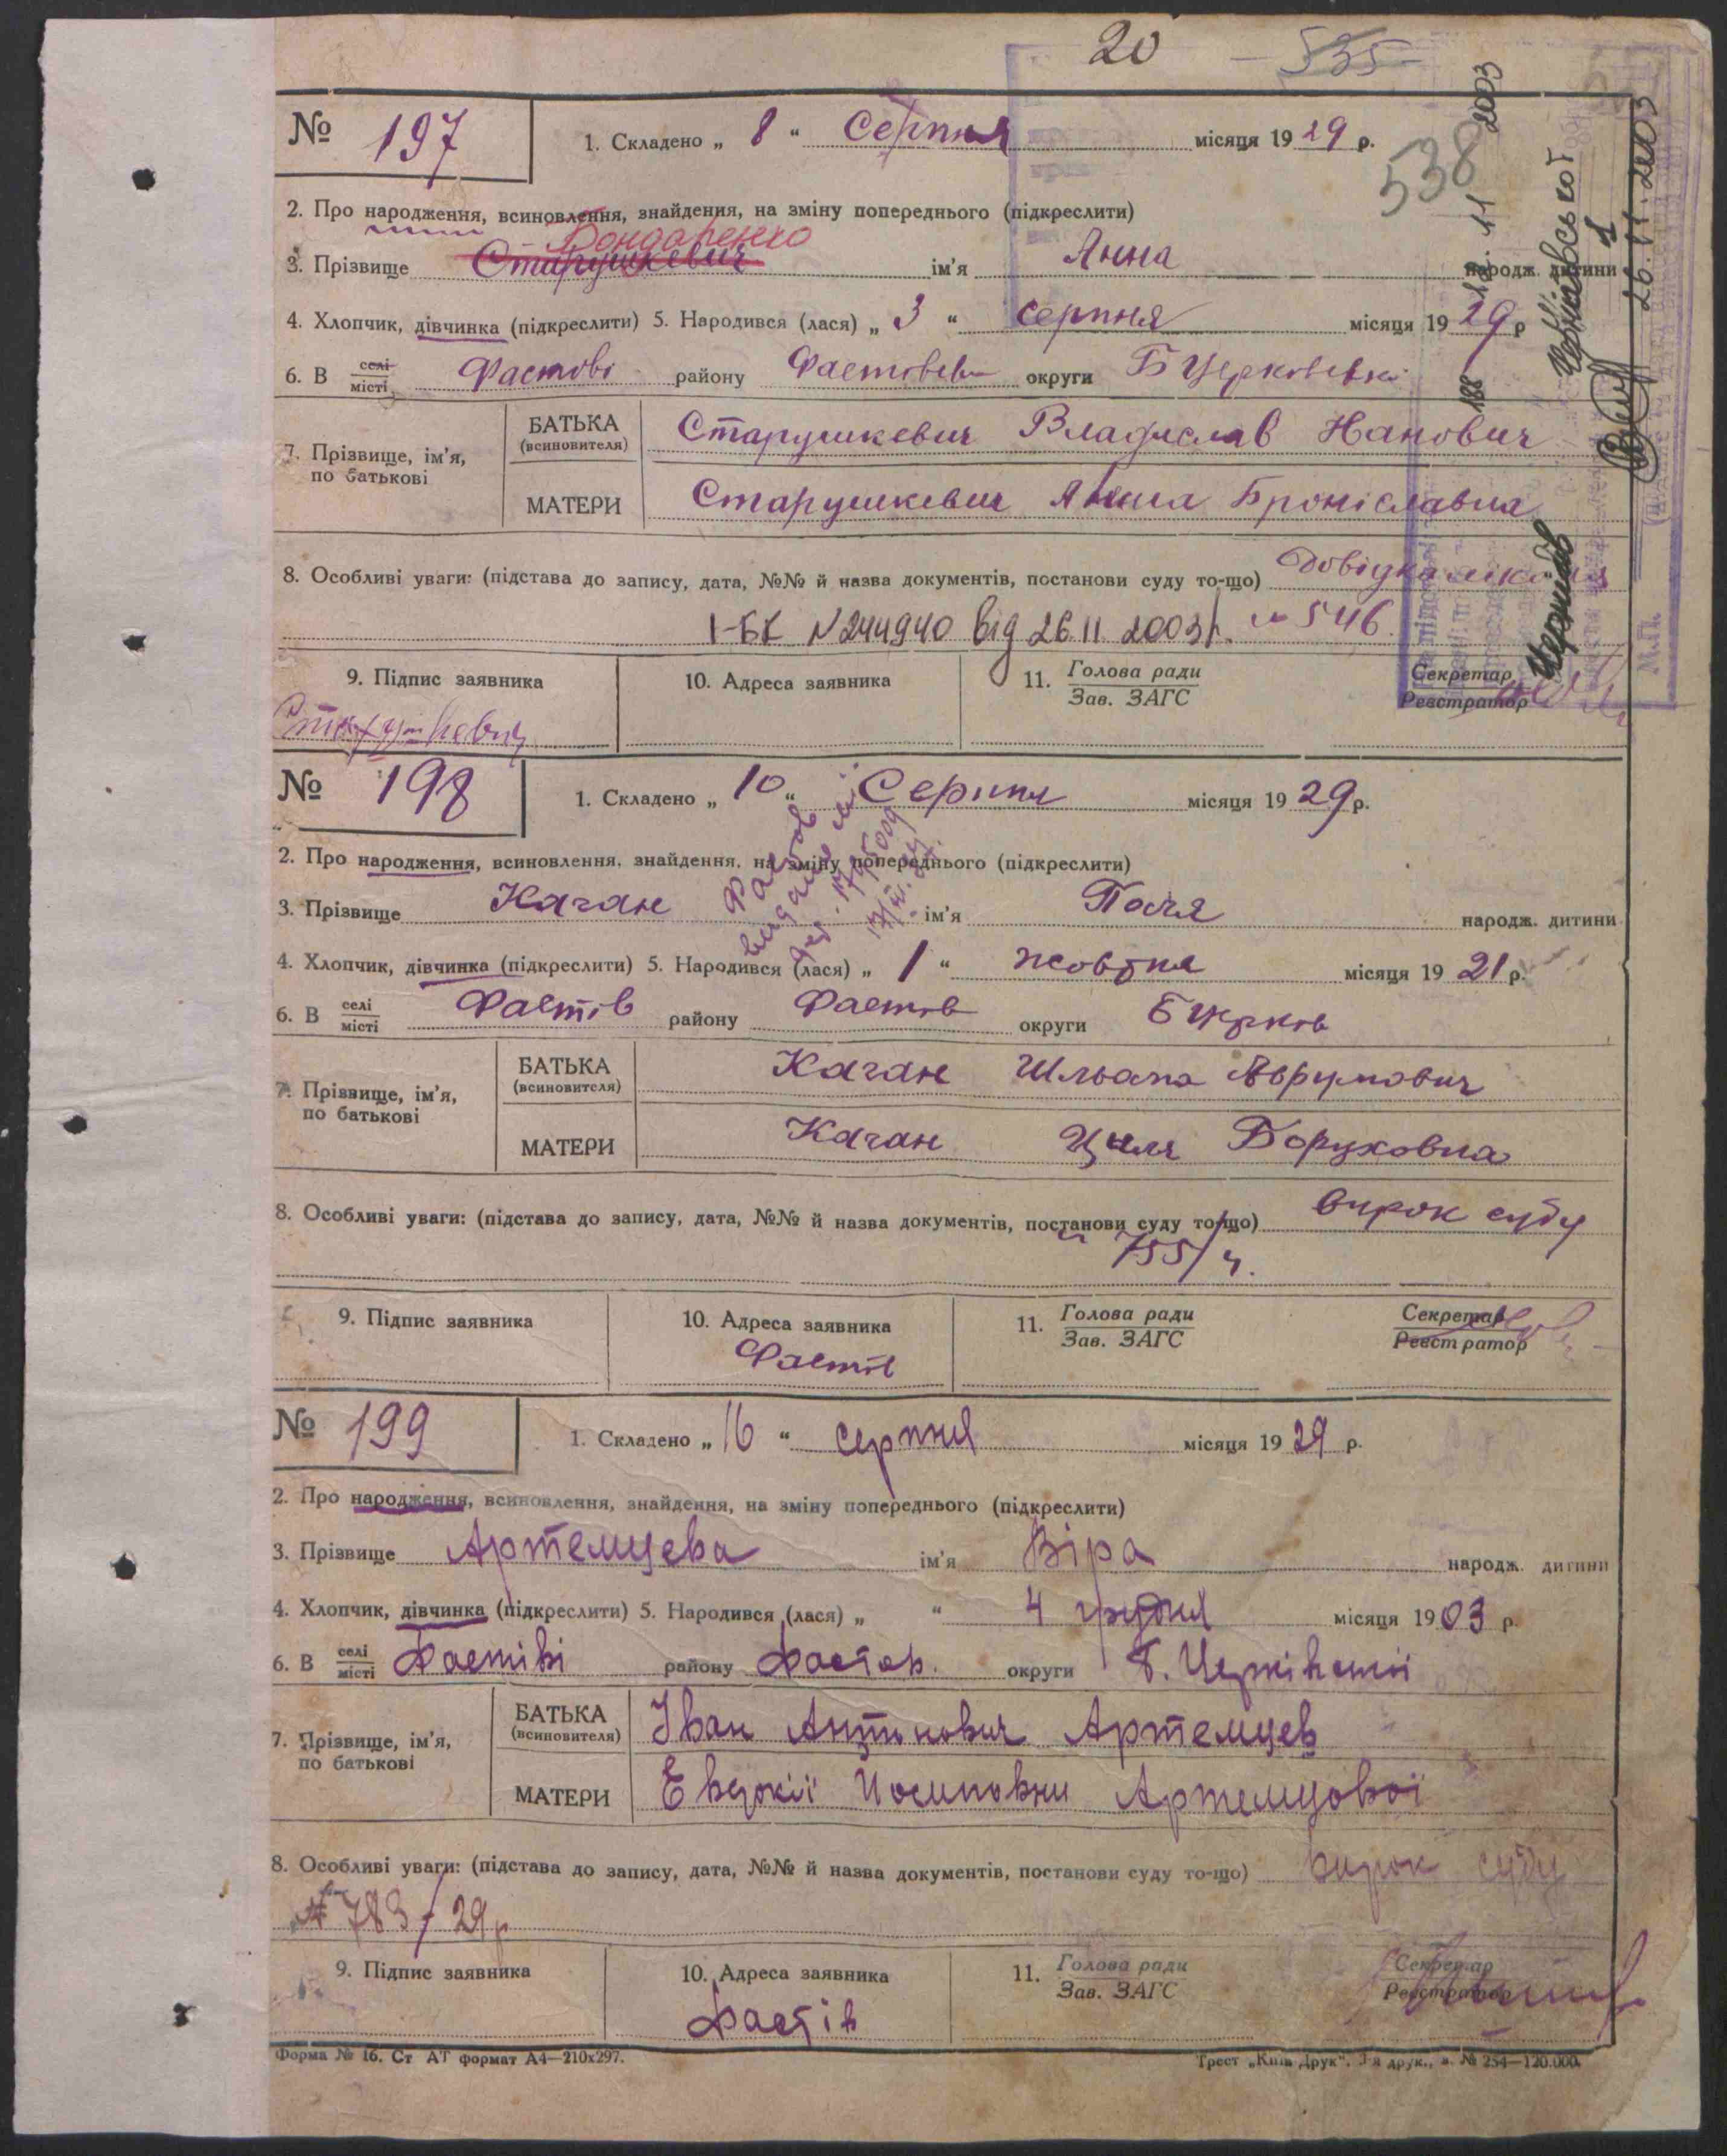 20 535
538
№ 197 1. Складено „ 8 “ Серпня місяця 1929 р.
2. Про народження, всиновлення, знайдення, на зміну попереднього (підкреслити)
Бондаренко
3. Прізвище Старушкевич ім'я Анна народж. дитини
4. Хлопчик, дівчинка (підкреслити) 5. Народився (лася) „ 3 “ серпня місяця 1929 р
6. В селі місті Фастові району Фастовськ округи Б Церковськ
7. Прізвище, ім'я, по батькові
БАТЬКА (всиновителя) Старушкевич Владислав Нанович
МАТЕРИ Старушкевич Анна Броніславна
8. Особливі уваги: (підстава до запису, дата, №№ й назва документів, постанови суду то-що) Довідка лікарня
I-БК N244940 від 26.11.2003р. № 546
9. Підпис заявника 10. Адреса заявника 11. Голова ради Зав. ЗАГС Секретар Реєстратор
Старушкевич
№ 198 1. Складено „ 10 “ Серпня місяця 1929 р.
2. Про народження, всиновлення, знайдення, на зміну попереднього (підкреслити)
3. Прізвище Каган ім'я Поля народж. дитини
4. Хлопчик, дівчинка (підкреслити) 5. Народився (лася) „ 1 “ жовтня місяця 1921 р.
6. В селі місті Фастів району Фастов округи Б Церков
7. Прізвище, ім'я, по батькові
БАТЬКА (всиновителя) Каган Шльома Аврумович
МАТЕРИ Каган Циля Боруховна
8. Особливі уваги: (підстава до запису, дата, №№ й назва документів, постанови суду то-що) Вирок суду
№ 755/4.
9. Підпис заявника 10. Адреса заявника 11. Голова ради Зав. ЗАГС Секретар Реєстратор
Фастів
№ 199 1. Складено „ 16 “ серпня місяця 1929 р.
2. Про народження, всиновлення, знайдення, на зміну попереднього (підкреслити)
3. Прізвище Артемцева ім'я Віра народж. дитини
4. Хлопчик, дівчинка (підкреслити) 5. Народився (лася) „ “ 4 грудня місяця 1903 р.
6. В селі місті Фастіві району Фастов. округи Б. Церківської
7. Прізвище, ім'я, по батькові
БАТЬКА (всиновителя) Іван Антонович Артемцев
МАТЕРИ Евдокії Иосиповни Артемцової
8. Особливі уваги: (підстава до запису, дата, №№ й назва документів, постанови суду то-що) вирок суду
№ 783/29 р
9. Підпис заявника 10. Адреса заявника 11. Голова ради Зав. ЗАГС Секретар Реєстратор
Фастів
Форма № 16. Ст АТ формат А4—210х297. Трест „Київ Друк“. 3-я друк., з. № 254—120.000.
26.11.2003
М.П.